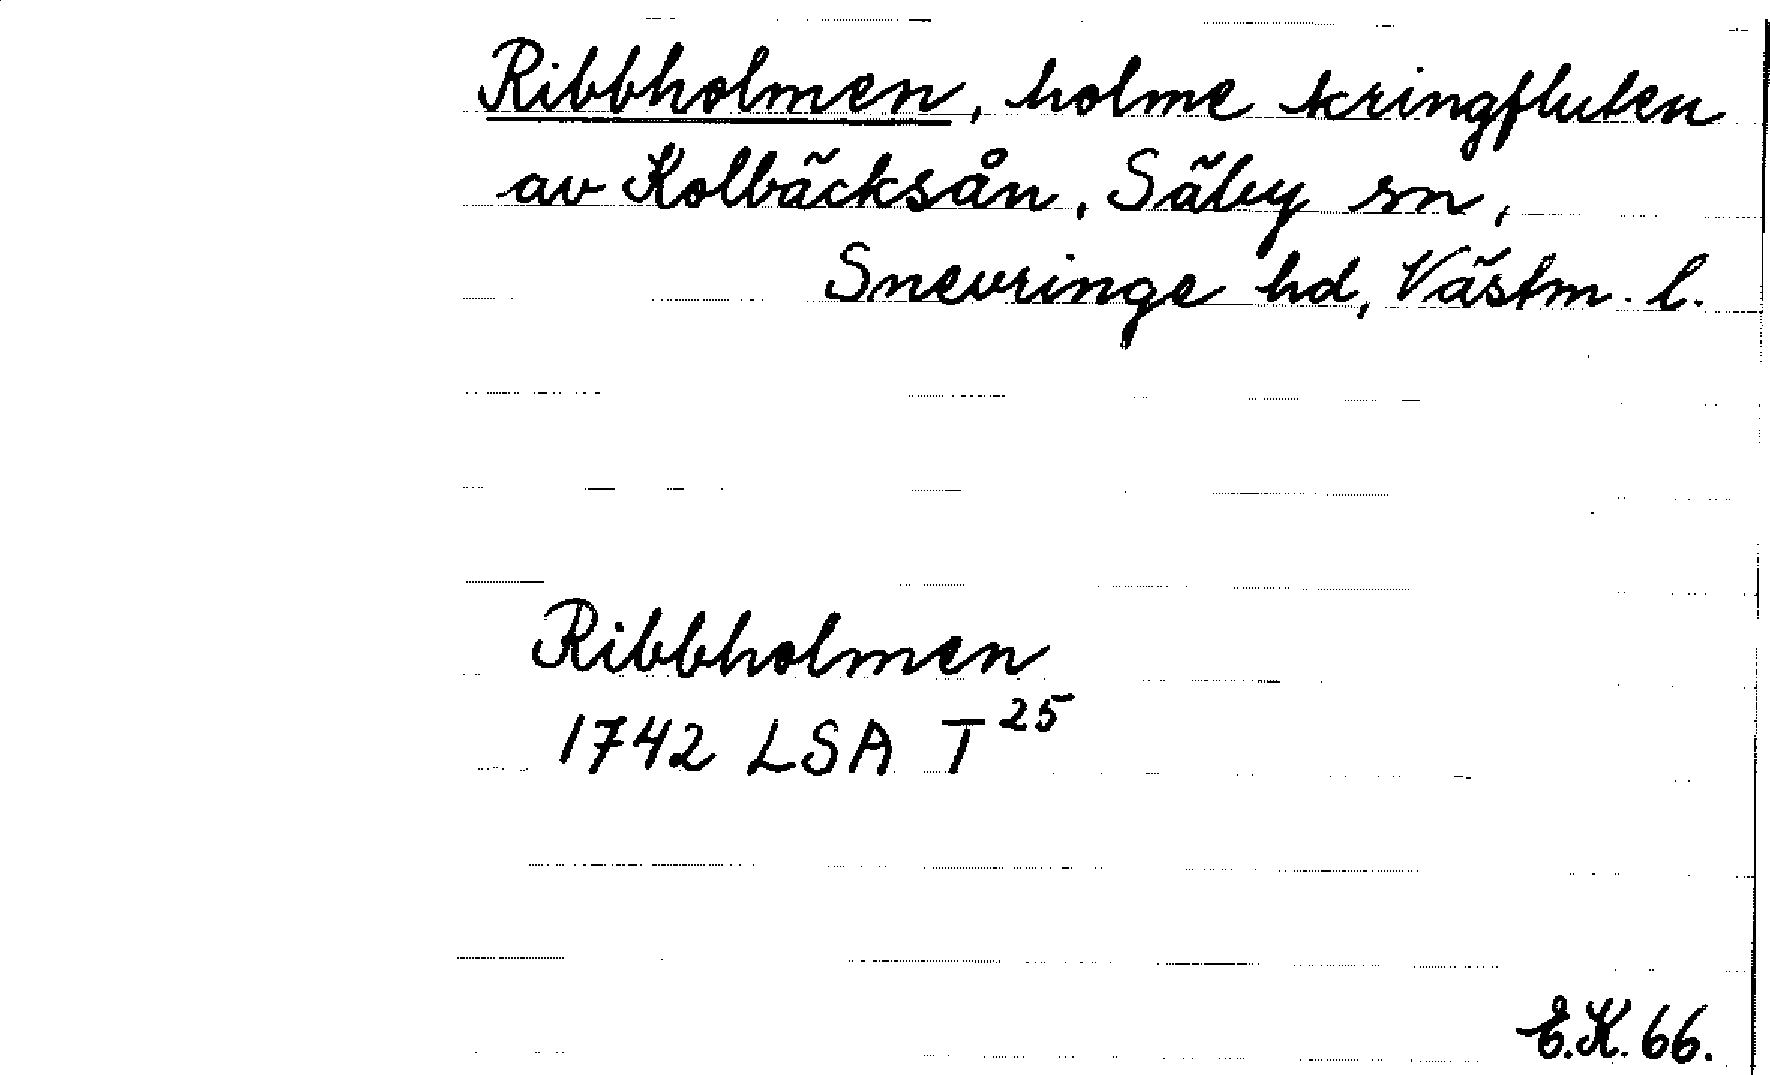 Ribbholmen, holme kringfluten
av Kolbäcksån, Säby sn,
Snevringe hd, Västm. l.
Ribbholmen
1742 LSA T 25
E.K. 66.